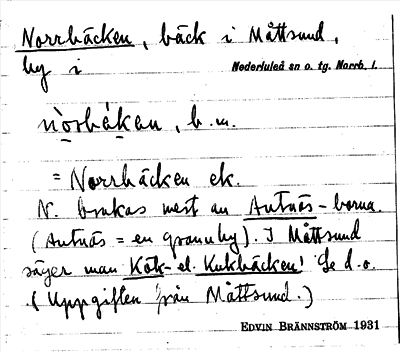 Norrbäcken, bäck i Måttsund,
by i Nederluleå sn o. tg. Norrb. l.
nòrbäkan, b.m.
= Norrbäcken ek.
N. brukas mest av Avtnäs-borna.
(Avtnäs = en grannby). I Måttsund
säger man Kök- el. Kukbäcken! Se d.o.
(Uppgiften från Måttsund.)
EDVIN BRÄNNSTRÖM 1931